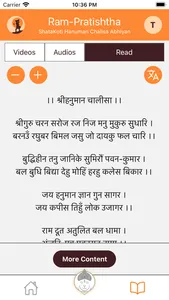 10:36 PM
Ram-Pratishtha
ShataKoti Hanuman Chalisa Abhiyan
T
Videos
Audios
Read
।। श्रीहनुमान चालीसा ।।
श्रीगुरु चरन सरोज रज निज मनु मुकुरु सुधारि ।
बरनउँ रघुबर बिमल जसु जो दायकु फल चारि ।।
बुद्धिहीन तनु जानिके सुमिरौं पवन-कुमार ।
बल बुधि बिद्या देहु मोहिं हरहु कलेस बिकार ।।
जय हनुमान ज्ञान गुन सागर ।
जय कपीस तिहुँ लोक उजागर ।।
राम दूत अतुलित बल धामा ।
More Content